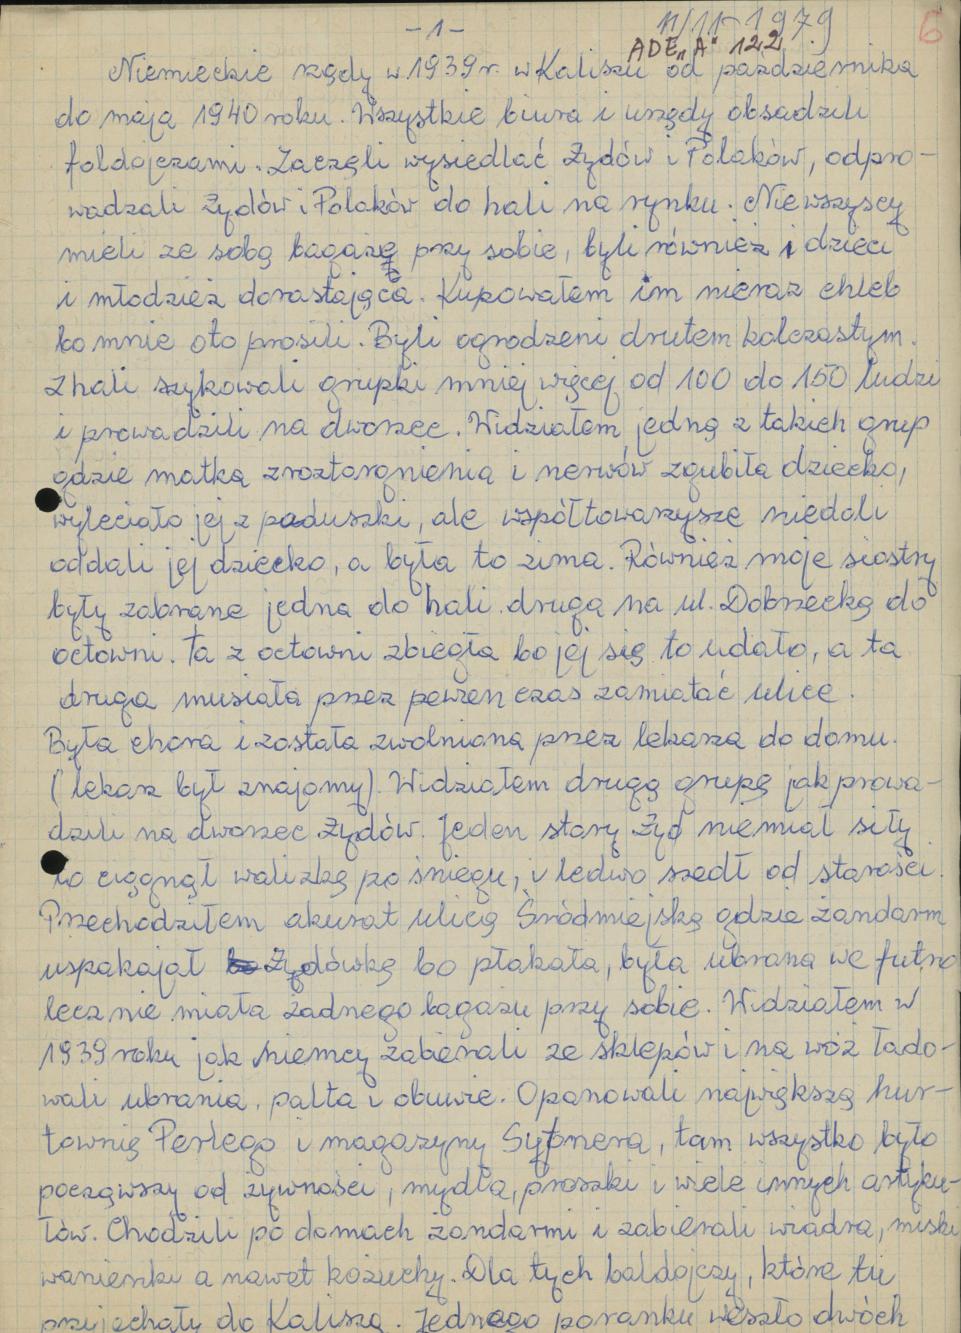 -1-
11/11-1979
6
ADE "A" 122
Niemieckie rządy w 1939 r. w Kaliszu od października
do maja 1940 roku. Wszystkie biura i urzędy obsadzili
foldojczami. Zaczęli wysiedlać Żydów i Polaków, odpro-
wadzali Żydów i Polaków do hali na rynku. Niewszyscy
mieli ze sobą bagaże przy sobie, byli również i dzieci
i młodzież dorastająca. Kupowałem im nieraz chleb
bo mnie oto prosili. Byli ogrodzeni drutem kolczastym.
Z hali szykowali grupki mniej więcej od 100 do 150 ludzi
i prowadzili na dworzec. Widziałem jedną z takich grup
gdzie matka zroztargnienia i nerwów zgubiła dziecko,
wyleciało jej z paduszki, ale współtowarzysze niedoli
oddali jej dziecko, a była to zima. Również moje siostry
były zabrane jedna do hali druga na ul. Dobrzecką do
octowni. Ta z octowni zbiegła bo jej się to udało, a ta
druga musiała przez pewien czas zamiatać ulice.
Była chora i została zwolniona przez lekarza do domu.
(lekarz był znajomy). Widziałem drugą grupę jak prowa-
dzili na dworzec Żydów. Jeden stary Żyd niemiał siły
to ciągnął walizkę po śniegu, i ledwo szedł od starości.
Przechodziłem akurat ulicą Śródmiejską gdzie żandarm
uspakajał Żydówkę bo płakała, była ubrana we futro
lecz nie miała żadnego bagażu przy sobie. Widziałem w
1939 roku jak Niemcy zabierali ze sklepów i na wóz łado-
wali ubrania, palta i obuwie. Opanowali największą hur-
townię Perlego i magazyny Sytnera, tam wszystko było
począwszy od żywności, mydła, proszki i wiele innych artyku-
łów. Chodzili po domach żandarmi i zabierali wiadra, miski
wanienki a nawet kożuchy. Dla tych baldojczy, które tu
przyjechały do Kalisza. Jednego poranku weszło dwóch